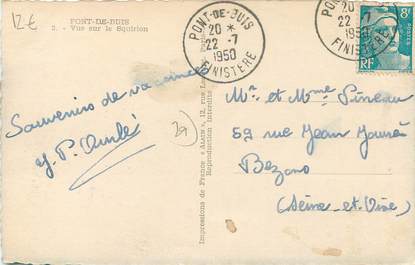 12€
PONT-DE-BUIS
2. - Vue sur le Squirion
PONT-DE-BUIS
20 *
22 -7
1950
FINISTERE
PO
20
22
1950
FINISTERE
8F
RF
Souvenirs de vacances
J. P.
29
Impressions de France "ALAIN", 12, rue
Reproduction Interdite
Mr et Mme Pineau
59 rue Jean Jaurès
Bezons
(Seine-et-Oise)